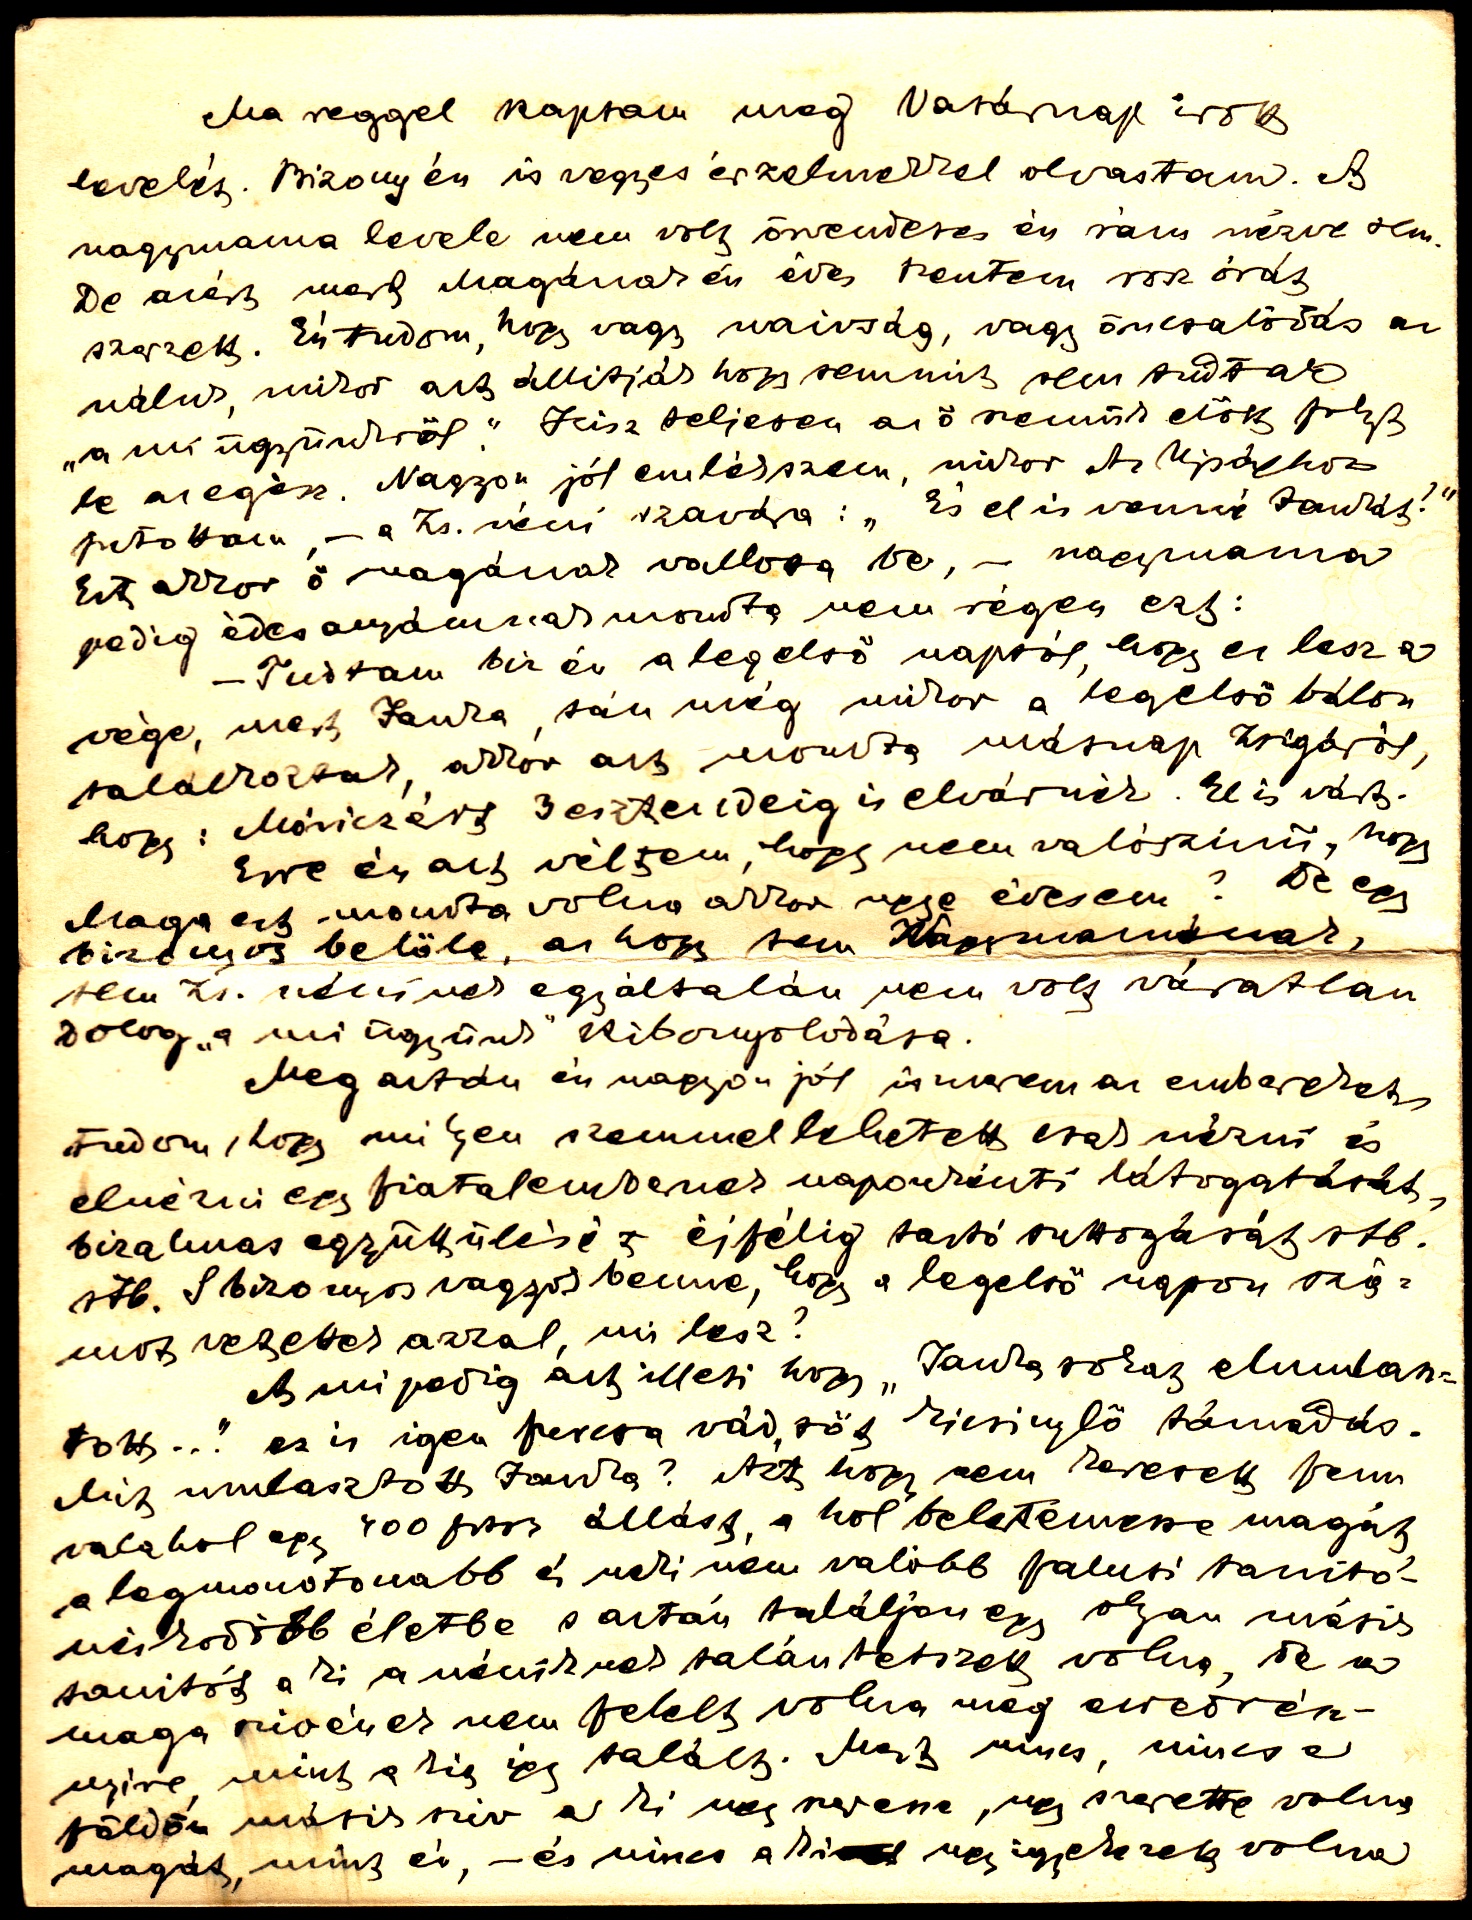 Ma reggel kaptam meg Vasárnap irott
levelét. Bizony én is vegyes érzelmekkel olvastam. A
nagymama levele nem volt örvendetes én rám nézve sem.
De azért mert Magának én édes szentem rossz órát
szerzett. Én tudom, hogy vagy naivság, vagy öncsalódás az
náluk, mikor azt állitják hogy semmit sem tudtak
„a mi ügyünkről." Hisz teljesen az ő szemük előtt folyt
le az egész. Nagyon jól emlékszem, mikor Az Ujsághoz
jutottam, – a Zs. néni szavára: „És el is venné Jankát?"
Ezt akkor ő magának vallotta be, – nagymama
pedig édesanyámnak mondta nem régen ezt:
– Tudtam biz én a legelső naptól, hogy ez lesz a
vége, mert Janka, tán még mikor a legelső bálon
találkoztak, akkor azt mondta másnap Zsigáról,
hogy: Móriczért 3 esztendeig is elvárnék. El is várt.
Erre én azt véltem, hogy nem valószinü, hogy
Maga ezt mondta volna akkor ugye édesem? De egy
bizonyos belőle, az hogy sem Nagymamának,
sem Zs. néninek egyáltalán nem volt váratlan
dolog „a mi ügyünk" kibonyolodása.
Meg aztán én nagyon jól ismerem az embereket,
tudom, hogy milyen szemmel lehetett csak nézni és
elnézni egy fiatalembernek naponkénti látogatását,
bizalmas együttülését éjfélig tartó suttogását stb.
stb. S bizonyos vagyok benne, hogy a legelső napon szá-
mot vetettek azzal, mi lesz?
A mi pedig azt illeti hogy „Janka sokat elmulasz-
tott..." ez is igen furcsa vád, sőt kicsinylő támadás.
Mit mulasztott Janka? Azt hogy nem keresett fenn
valahol egy 400 frtos állást, a hol beletemesse magát
a legmonotonabb és neki nem valóbb falusi tanitó-
néskodóbb életbe s aztán találjon egy olyan másik
tanitót a ki a néniknek talán tetszett volna, de a
maga szivének nem felelt volna meg ezredrész-
nyire, mint a kit igy talált. Mert nincs, nincs a
földön másik sziv a ki ugy szeresse, ugy szerette volna
magát, mint én, – és nincs a ki ugy igyekezett volna